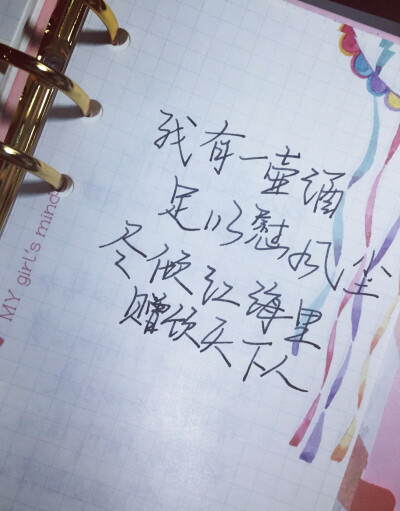 我有一壶酒
足以慰风尘
尽倾江海里
赠饮天下人
MY girl's mind